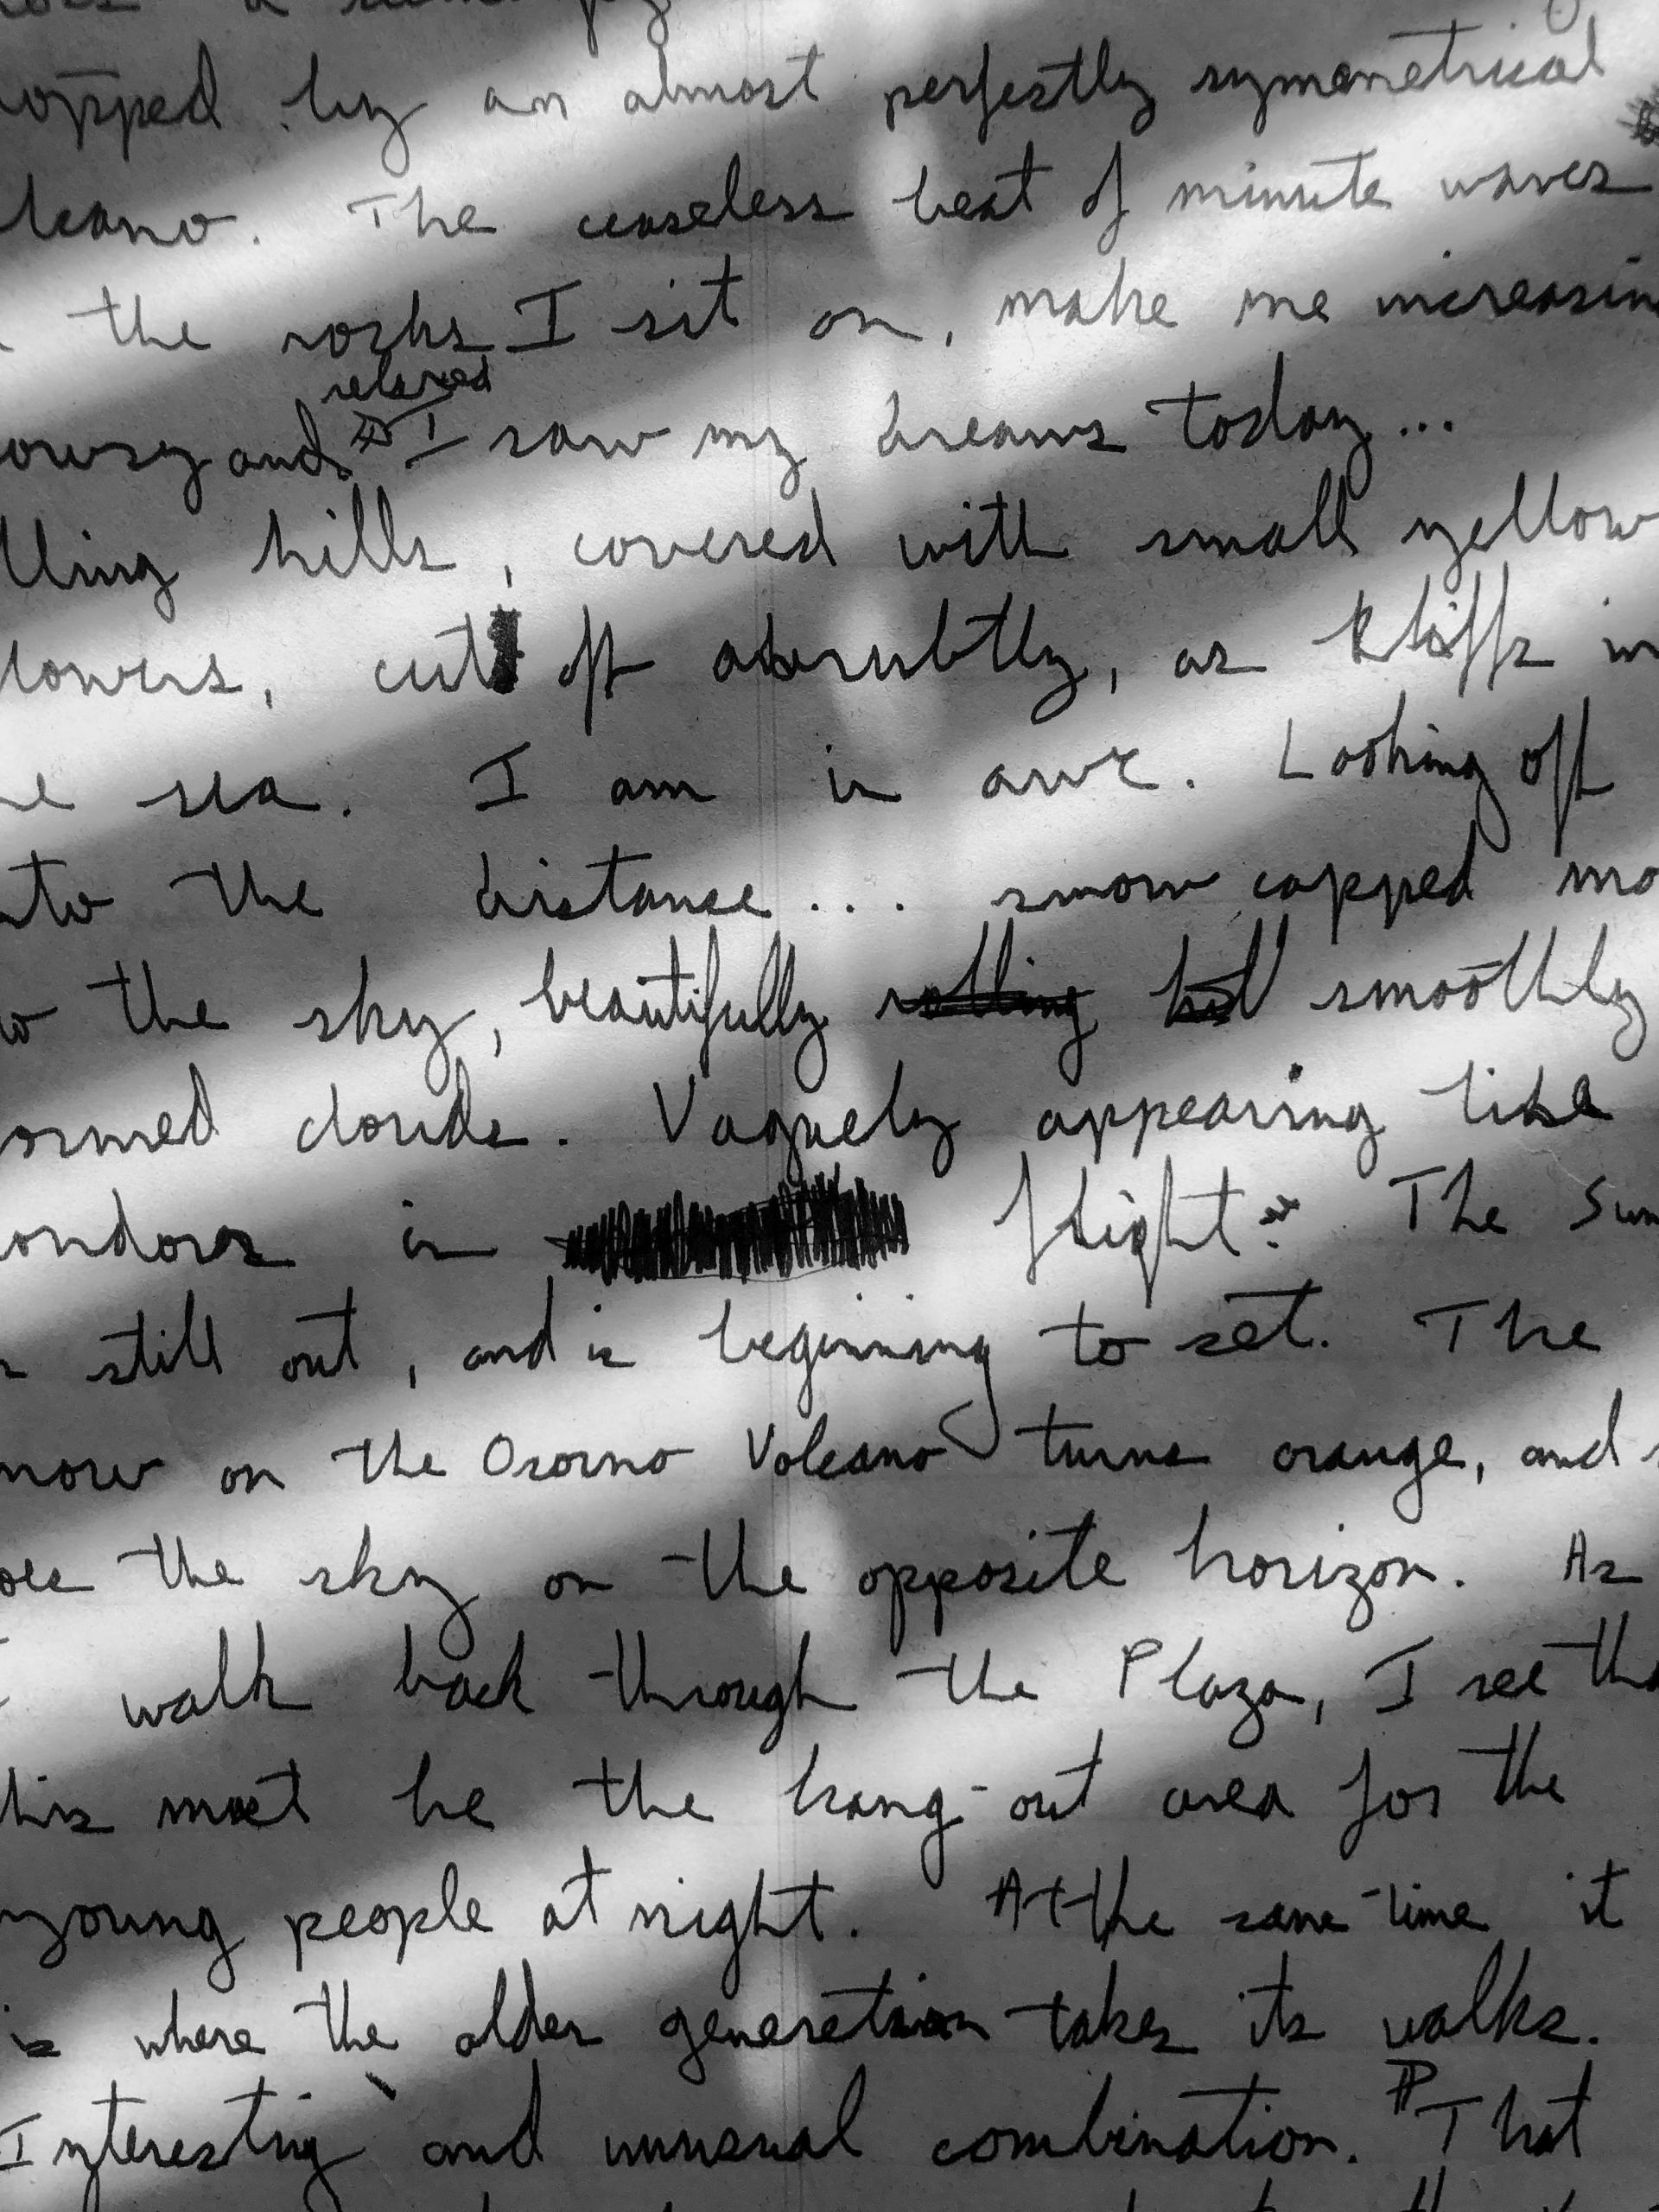 opped by an almost perfectly symmetrical
lcano. The ceaseless beat of minute waves
the rocks I sit on, make me increasin
relaxed
owsy and I saw my dreams today...
lling hills, covered with small yellow
lowers, cut off abrubtly, as kliffs in
he sea. I am in awe. Looking off
nto the distance... snow capped mo
to the sky, beautifully rolling smoothly
ormed clouds. Vaguely appearing like
ondors in flight. The Sun
still out, and is beginning to set. The
now on the Osorno Volcano turns orange, and
oes the sky on the opposite horizon. As
I walk back through the Plaza, I see tha
his must be the hang-out area for the
young people at night. At the same time it
is where the older generation takes its walks.
Interesting and unusual combination. That